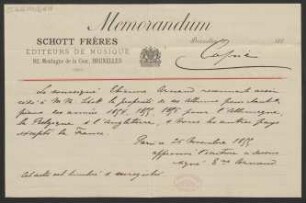 Memorandum
SCHOTT FRÈRES
ÉDITEURS DE MUSIQUE
82, Montagne de la Cour, BRUXELLES
Bruxelles 188
Copie
Le soussigné Etienne Arnaud reconnait avoir
cédé à M M. Schott la propriété de ses albums pour chant &
piano des années 1854, 1855, 1856 pour l'Allemagne,
la Belgique & l'Angleterre, & tous les autres pays
excepté la France.
Paris 25 Novembre 1855
approuvé l'écriture ci dessus
signé Ene Arnaud